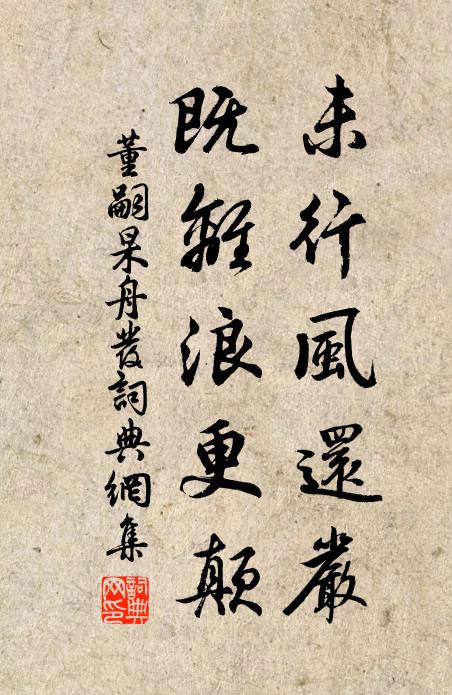 未行風還嚴
既離浪更顛
董嗣杲舟發詞典網集
詞典網印